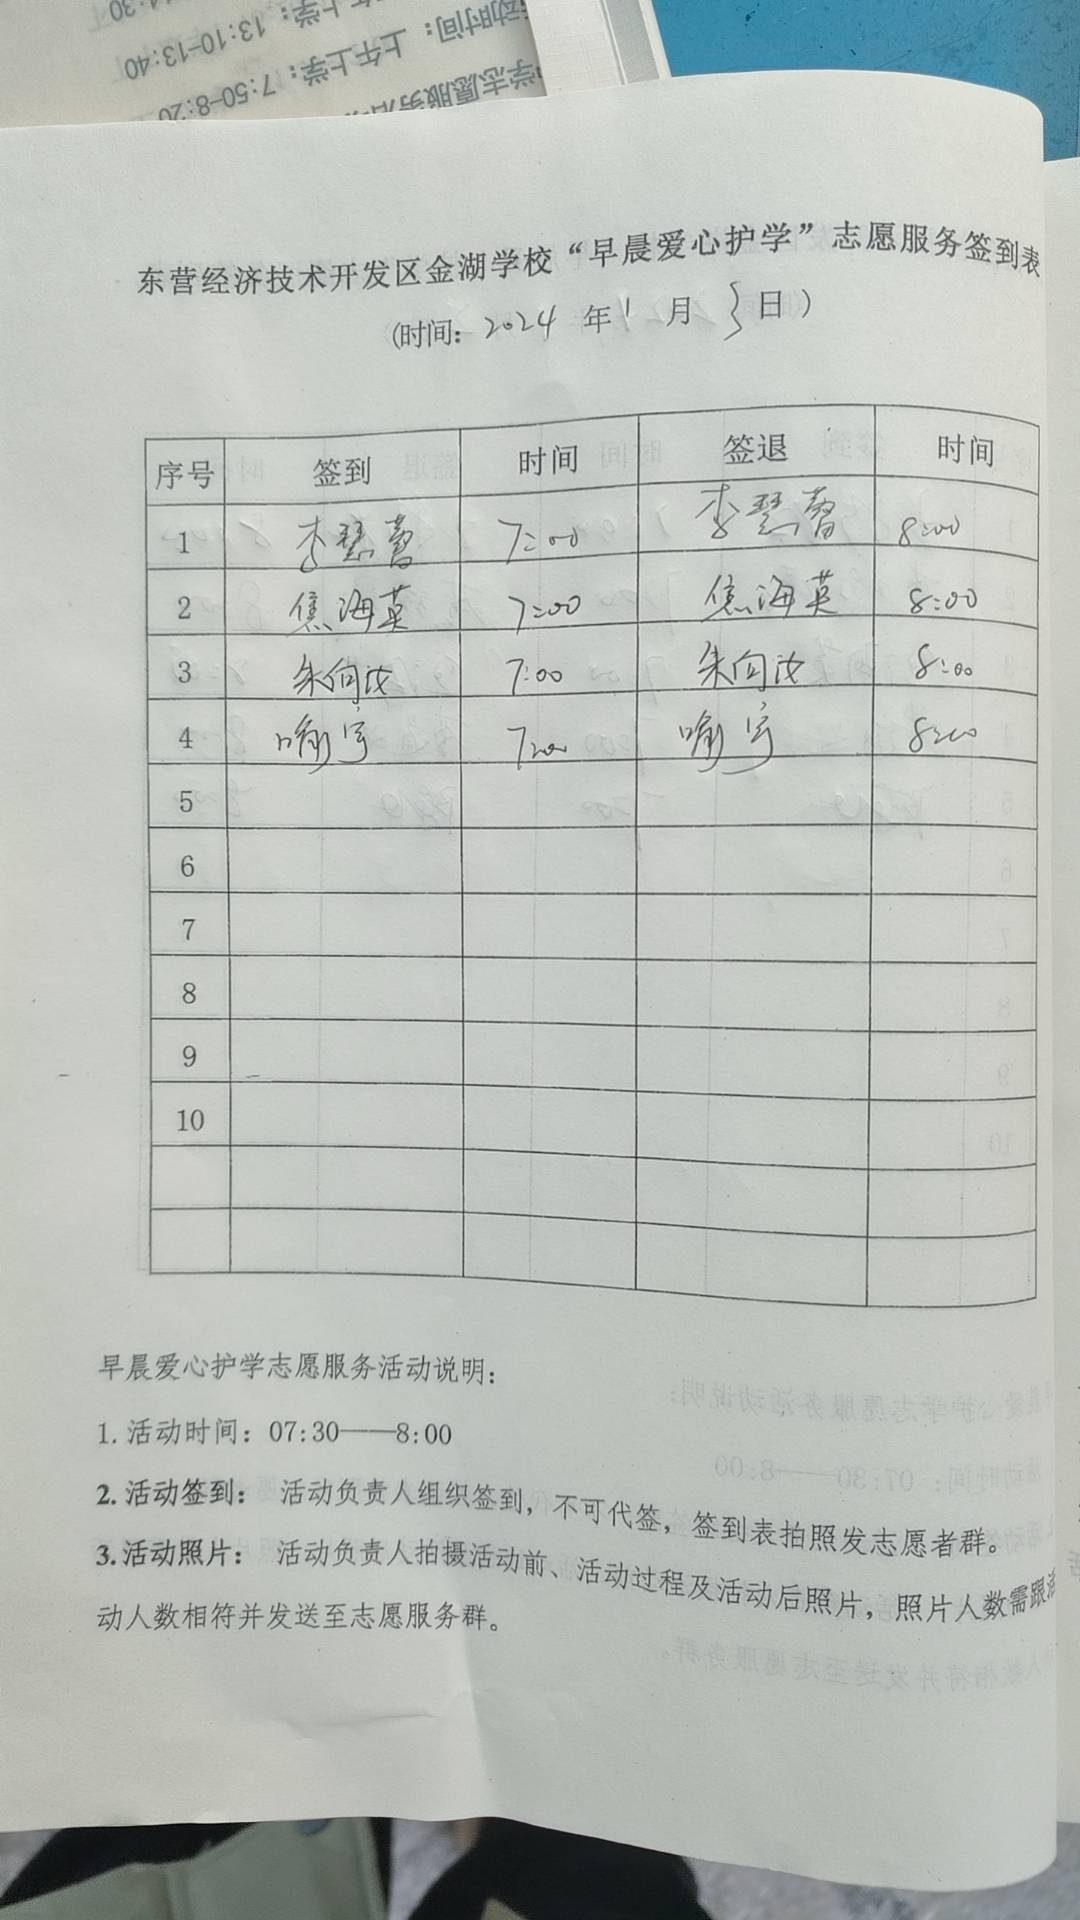 东营经济技术开发区金湖学校“早晨爱心护学”志愿服务签到表
(时间: 2024 年 1 月 3 日)
序号 签到 时间 签退 时间
1 李慧蕾 7:00 李慧蕾 8:00
2 焦海英 7:00 焦海英 8:00
3 朱向 7:00 朱向 8:00
4 喻宇 7:00 喻宇 8:00
5
6
7
8
9
10
早晨爱心护学志愿服务活动说明:
1. 活动时间: 07:30——8:00
2. 活动签到: 活动负责人组织签到, 不可代签, 签到表拍照发志愿者群。
3. 活动照片: 活动负责人拍摄活动前、活动过程及活动后照片, 照片人数需跟活
动人数相符并发送至志愿服务群。
学志愿服务
动时间: 上午上学: 7:50-8:20
午上学: 13:10-13:40